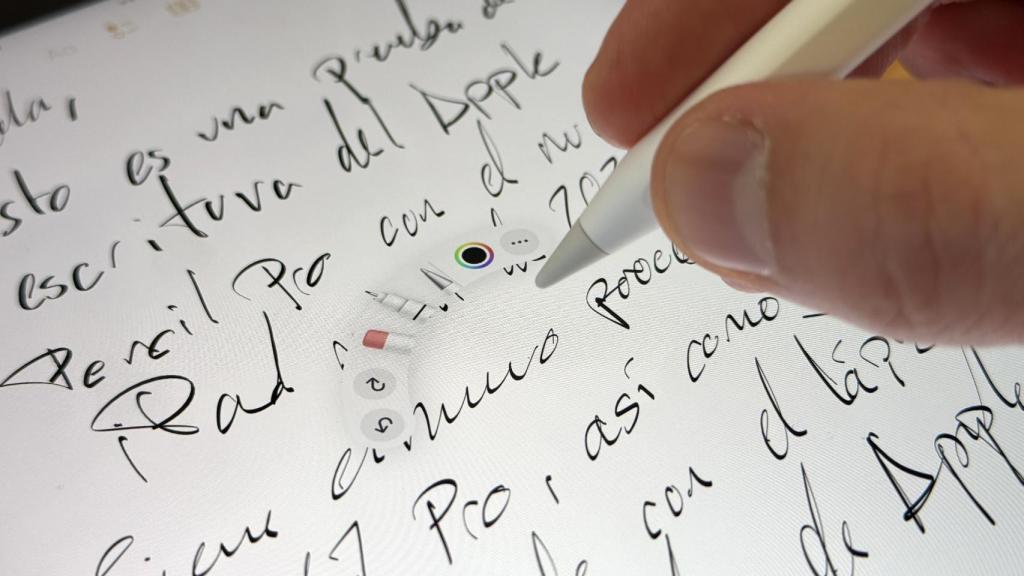 ola,
sto es una prueba de
escritura del Apple
Pencil Pro con el nu
iPad 202
iene mismo proce
M Pro, así como
con el lápi
de Apple